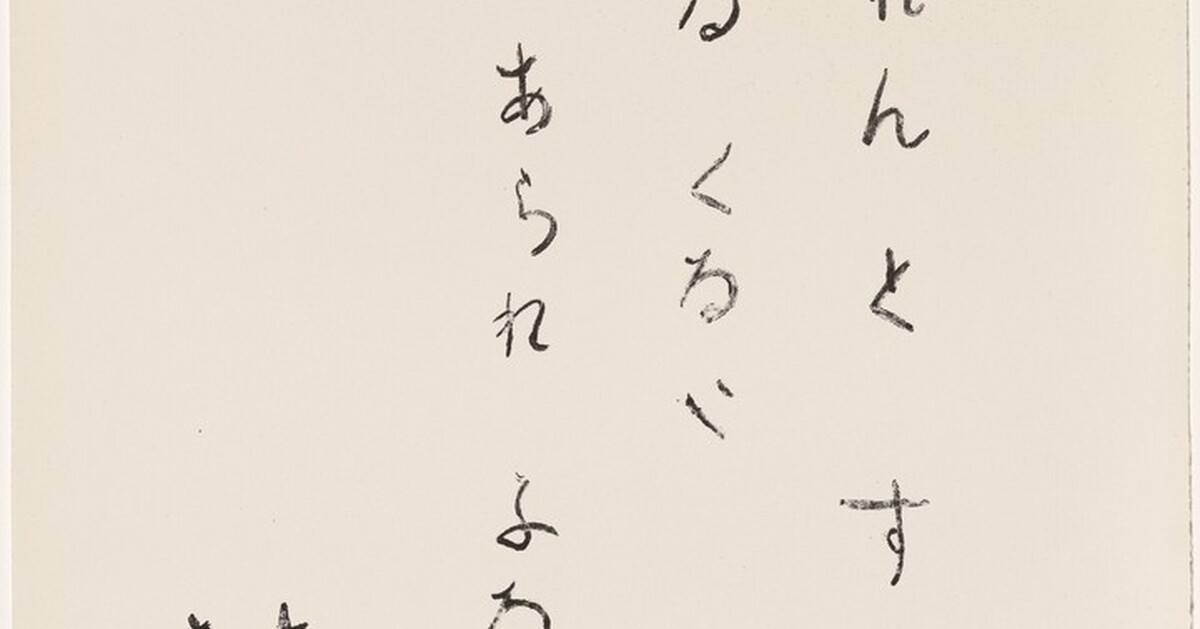 れんとす
る くるゞ
あられ よる